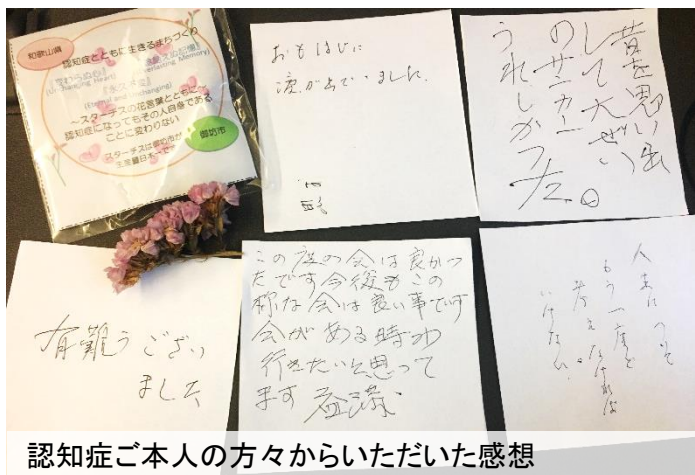 和歌山県
認知症とともに生きるまちづくり
『変わらぬ心』
(Unchanging Heart)
『途絶えぬ記憶』
(Everlasting Memory)
『永久不変』
(Eternal and Unchanging)
~スターチスの花言葉とともに~
認知症になってもその人自身である
ことに変わりない
スターチスは御坊市が
生産量日本一です
御坊市
おもはじに
涙が出ていました。
昔を思い出
して大ぜい
のサッカー
うれしかった。
有難うござい
ました
この度の会は良かっ
たです今後もこの
様な会は良い事です
会がある時は
行きたいと思って
ます
人生について
もう一度と
考えなければ
いけない。
認知症ご本人の方々からいただいた感想